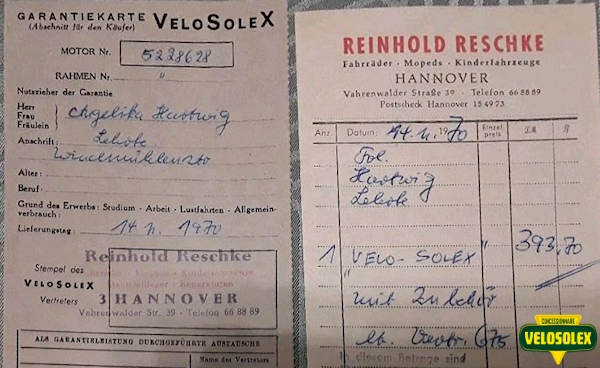 GARANTIEKARTE VELOSOLEX
(Abschnitt für den Käufer)
MOTOR Nr. 5228628
RAHMEN Nr. "
Nutzzieher der Garantie
Herr
Frau
Fräulein
Angelika Hartwig
Anschrift: Lehrte
Windmühlenstr
Alter:
Beruf:
Grund des Erwerbs: Studium - Arbeit - Lustfahrten - Allgemein-
verbrauch:
Lieferungstag: 14.4.1970
Reinhold Reschke
Stempel des
VELOSOLEX
Vertreters
3 HANNOVER
Vahrenwalder Str. 39 - Telefon 66 88 89
ALS GARANTIELEISTUNG DURCHGEFÜHRTE AUSTAUSCHE
Name des Vertreters
REINHOLD RESCHKE
Fahrräder · Mopeds · Kinderfahrzeuge
HANNOVER
Vahrenwalder Straße 39 · Telefon 66 88 89
Postscheck Hannover 1549 73
Anz. Datum: 14.4.1970 Einzel preis DM
Frl.
Hartwig
Lehrte
1 "VELO-SOLEX" 393,70
mit Zubehör
In diesem Betrage sind
CONCESSIONNAIRE
VELOSOLEX